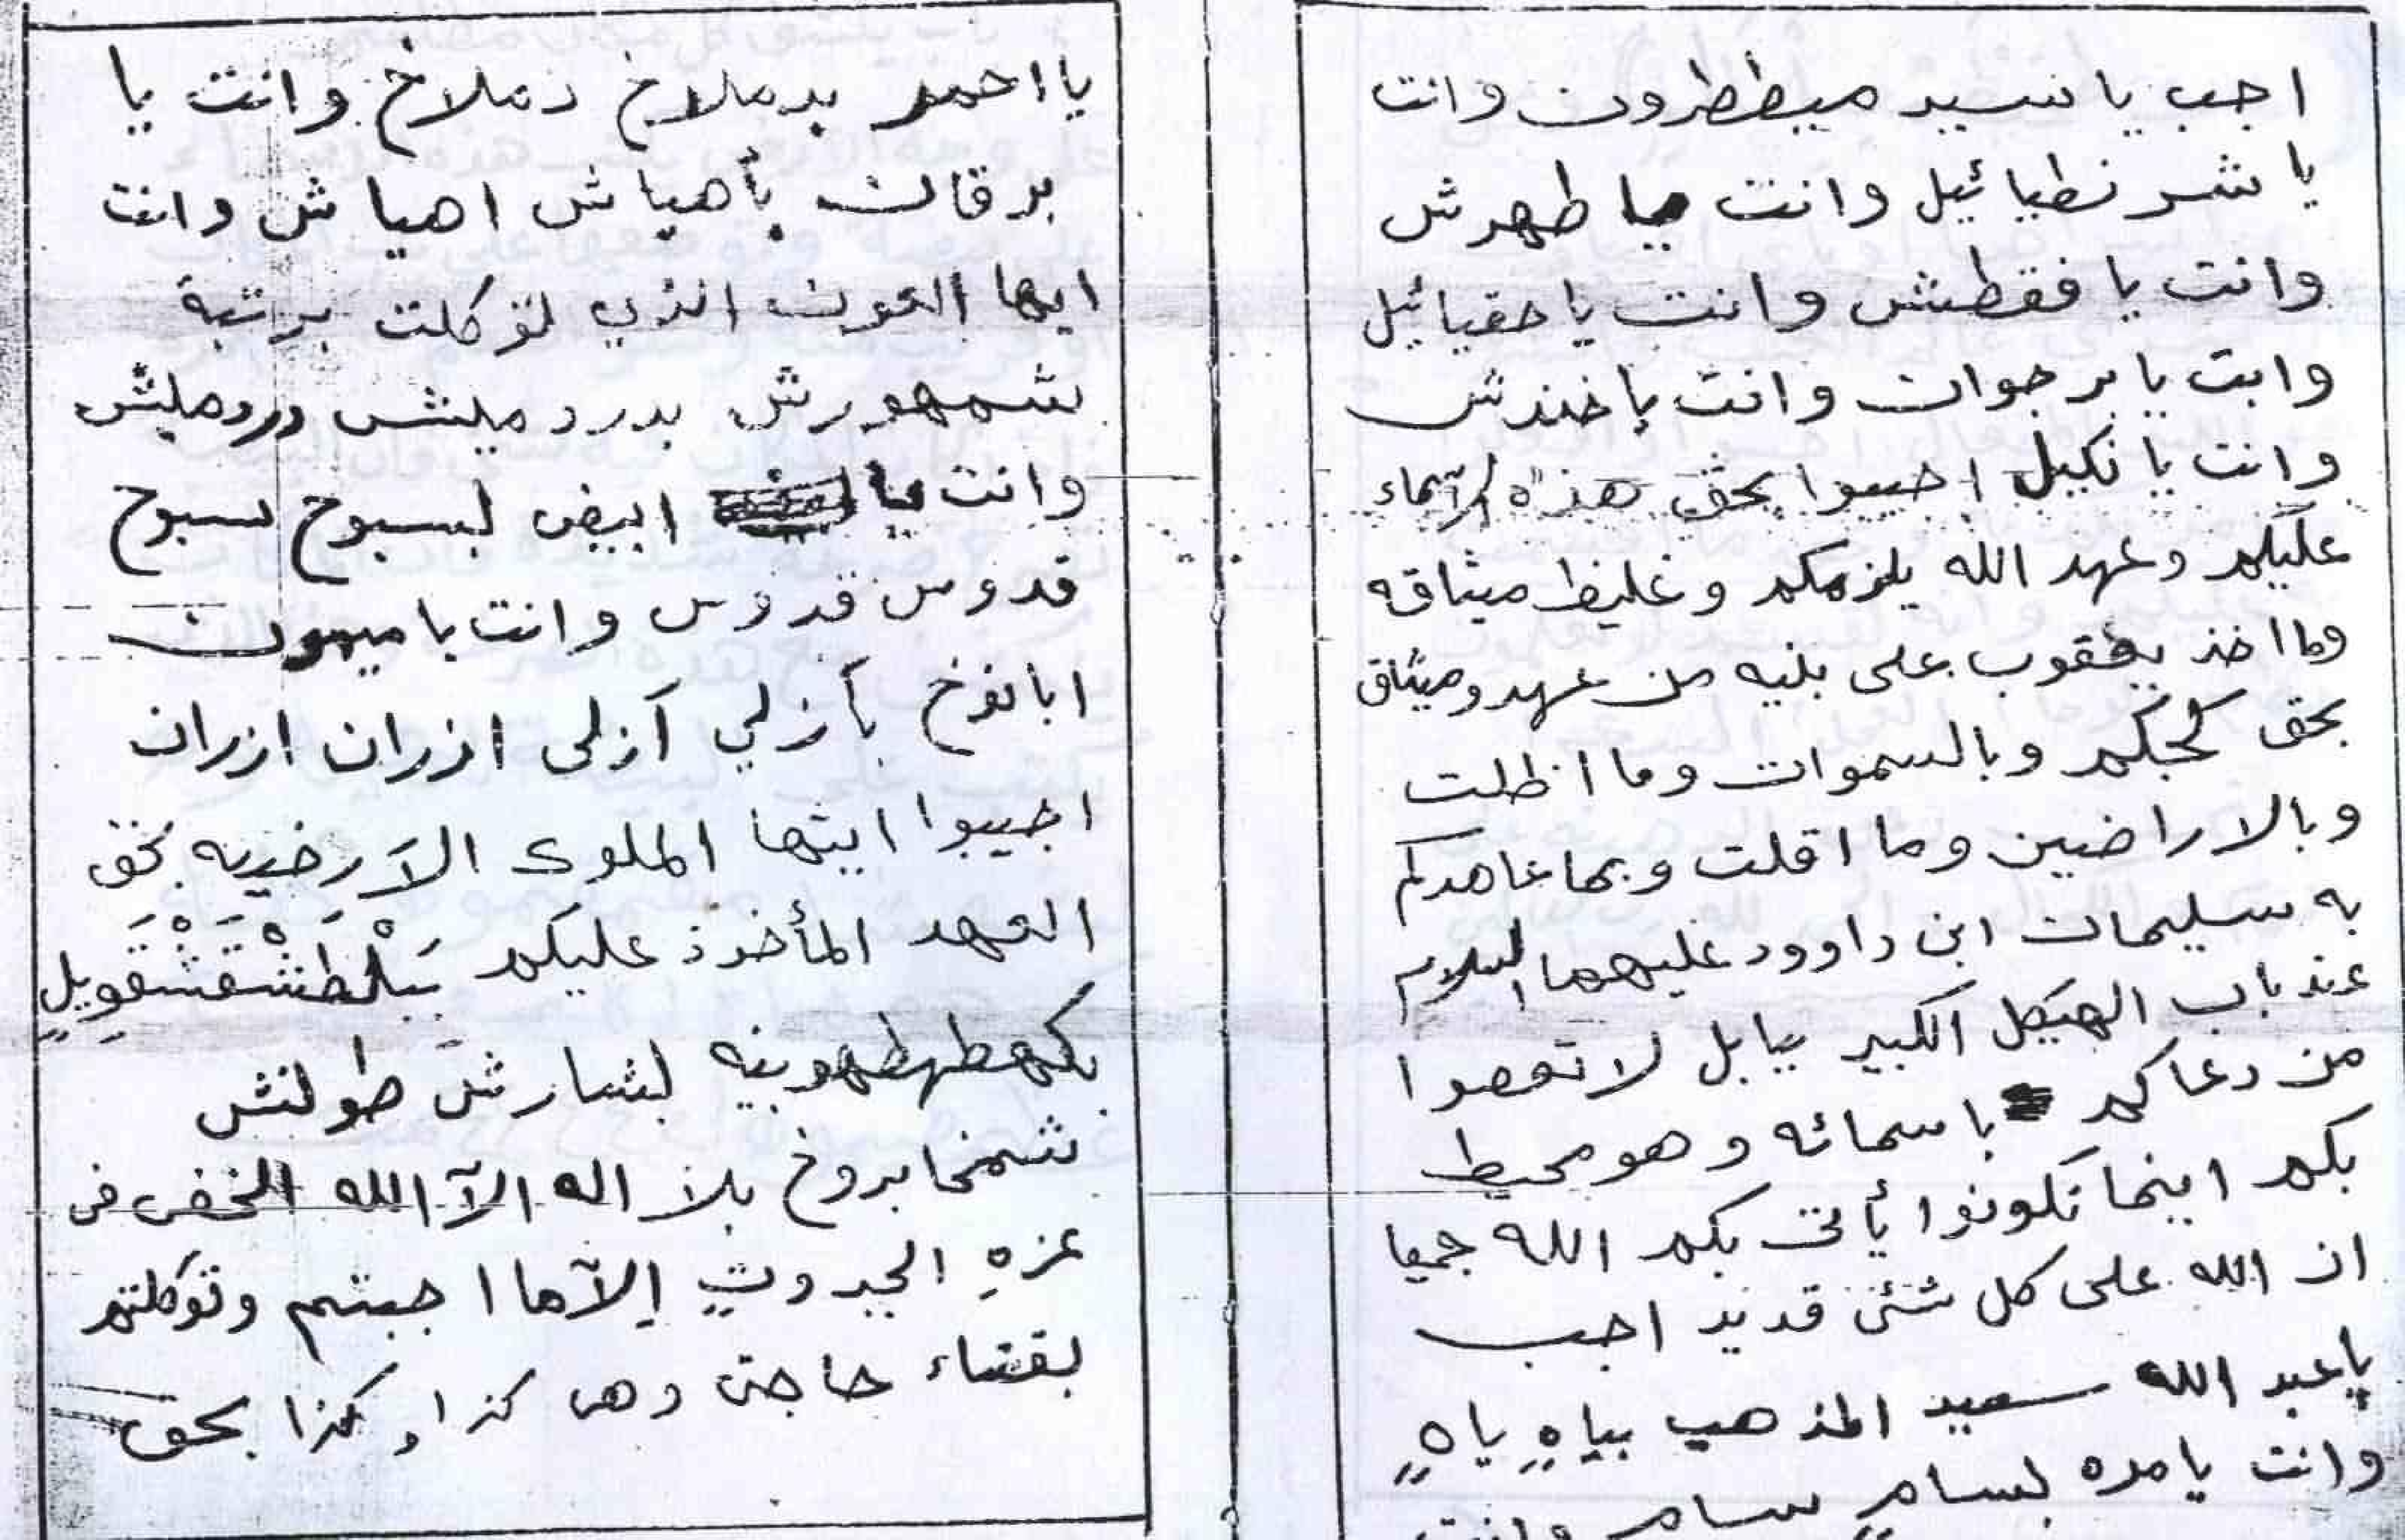 اجب يا سيد ميططرون وانت
يا شرنطيائيل وانت يا طهرش
وانت يا فقطش وانت يا حقيائيل
وانت يا برجوان وانت يا خندش
وانت يا نكيل اجيبوا بحق هذه الاسماء
عليكم وعهد الله يلزمكم وغليظ ميثاقه
وما اخذ يعقوب على بنيه من عهد وميثاق
بحق كجكم وبالسموات وما اظلت
وبالاراضين وما اقلت وبما عاهدكم
به سليمان ابن داوود عليهما السلام
عند باب الهيكل الكبير ببابل لا تعصوا
من دعاكم باسمائه وهو محيط
بكم اينما تكونوا يأت بكم الله جميعا
ان الله على كل شئ قدير اجب
يا عبد الله سعيد المذهب بياهٍ ياهٍ
وانت يا مره بسامٍ سامٍ وانت
يا احمر بدملاخ دملاخ وانت يا
برقان بأهياش اهياش وانت
ايها العون الذي توكلت برتبة
شمهورش بدردميش دردميش
وانت يا ابيض بسبوح سبوح
قدوس قدوس وانت يا ميمون
ابانوخ بأزلي آزلى ازران ازران
اجيبوا ايتها الملوك الآرضيه بحق
العهد المأخوذ عليكم
بكهطهطهونيه بشارش طولش
شمخا بروخ بلا اله الآ الله الخفى فى
عزهِ الجبروتِ إلآ ما اجبتم وتوكلتم
بقضاء حاجتى وهى كذا وكذا بحق